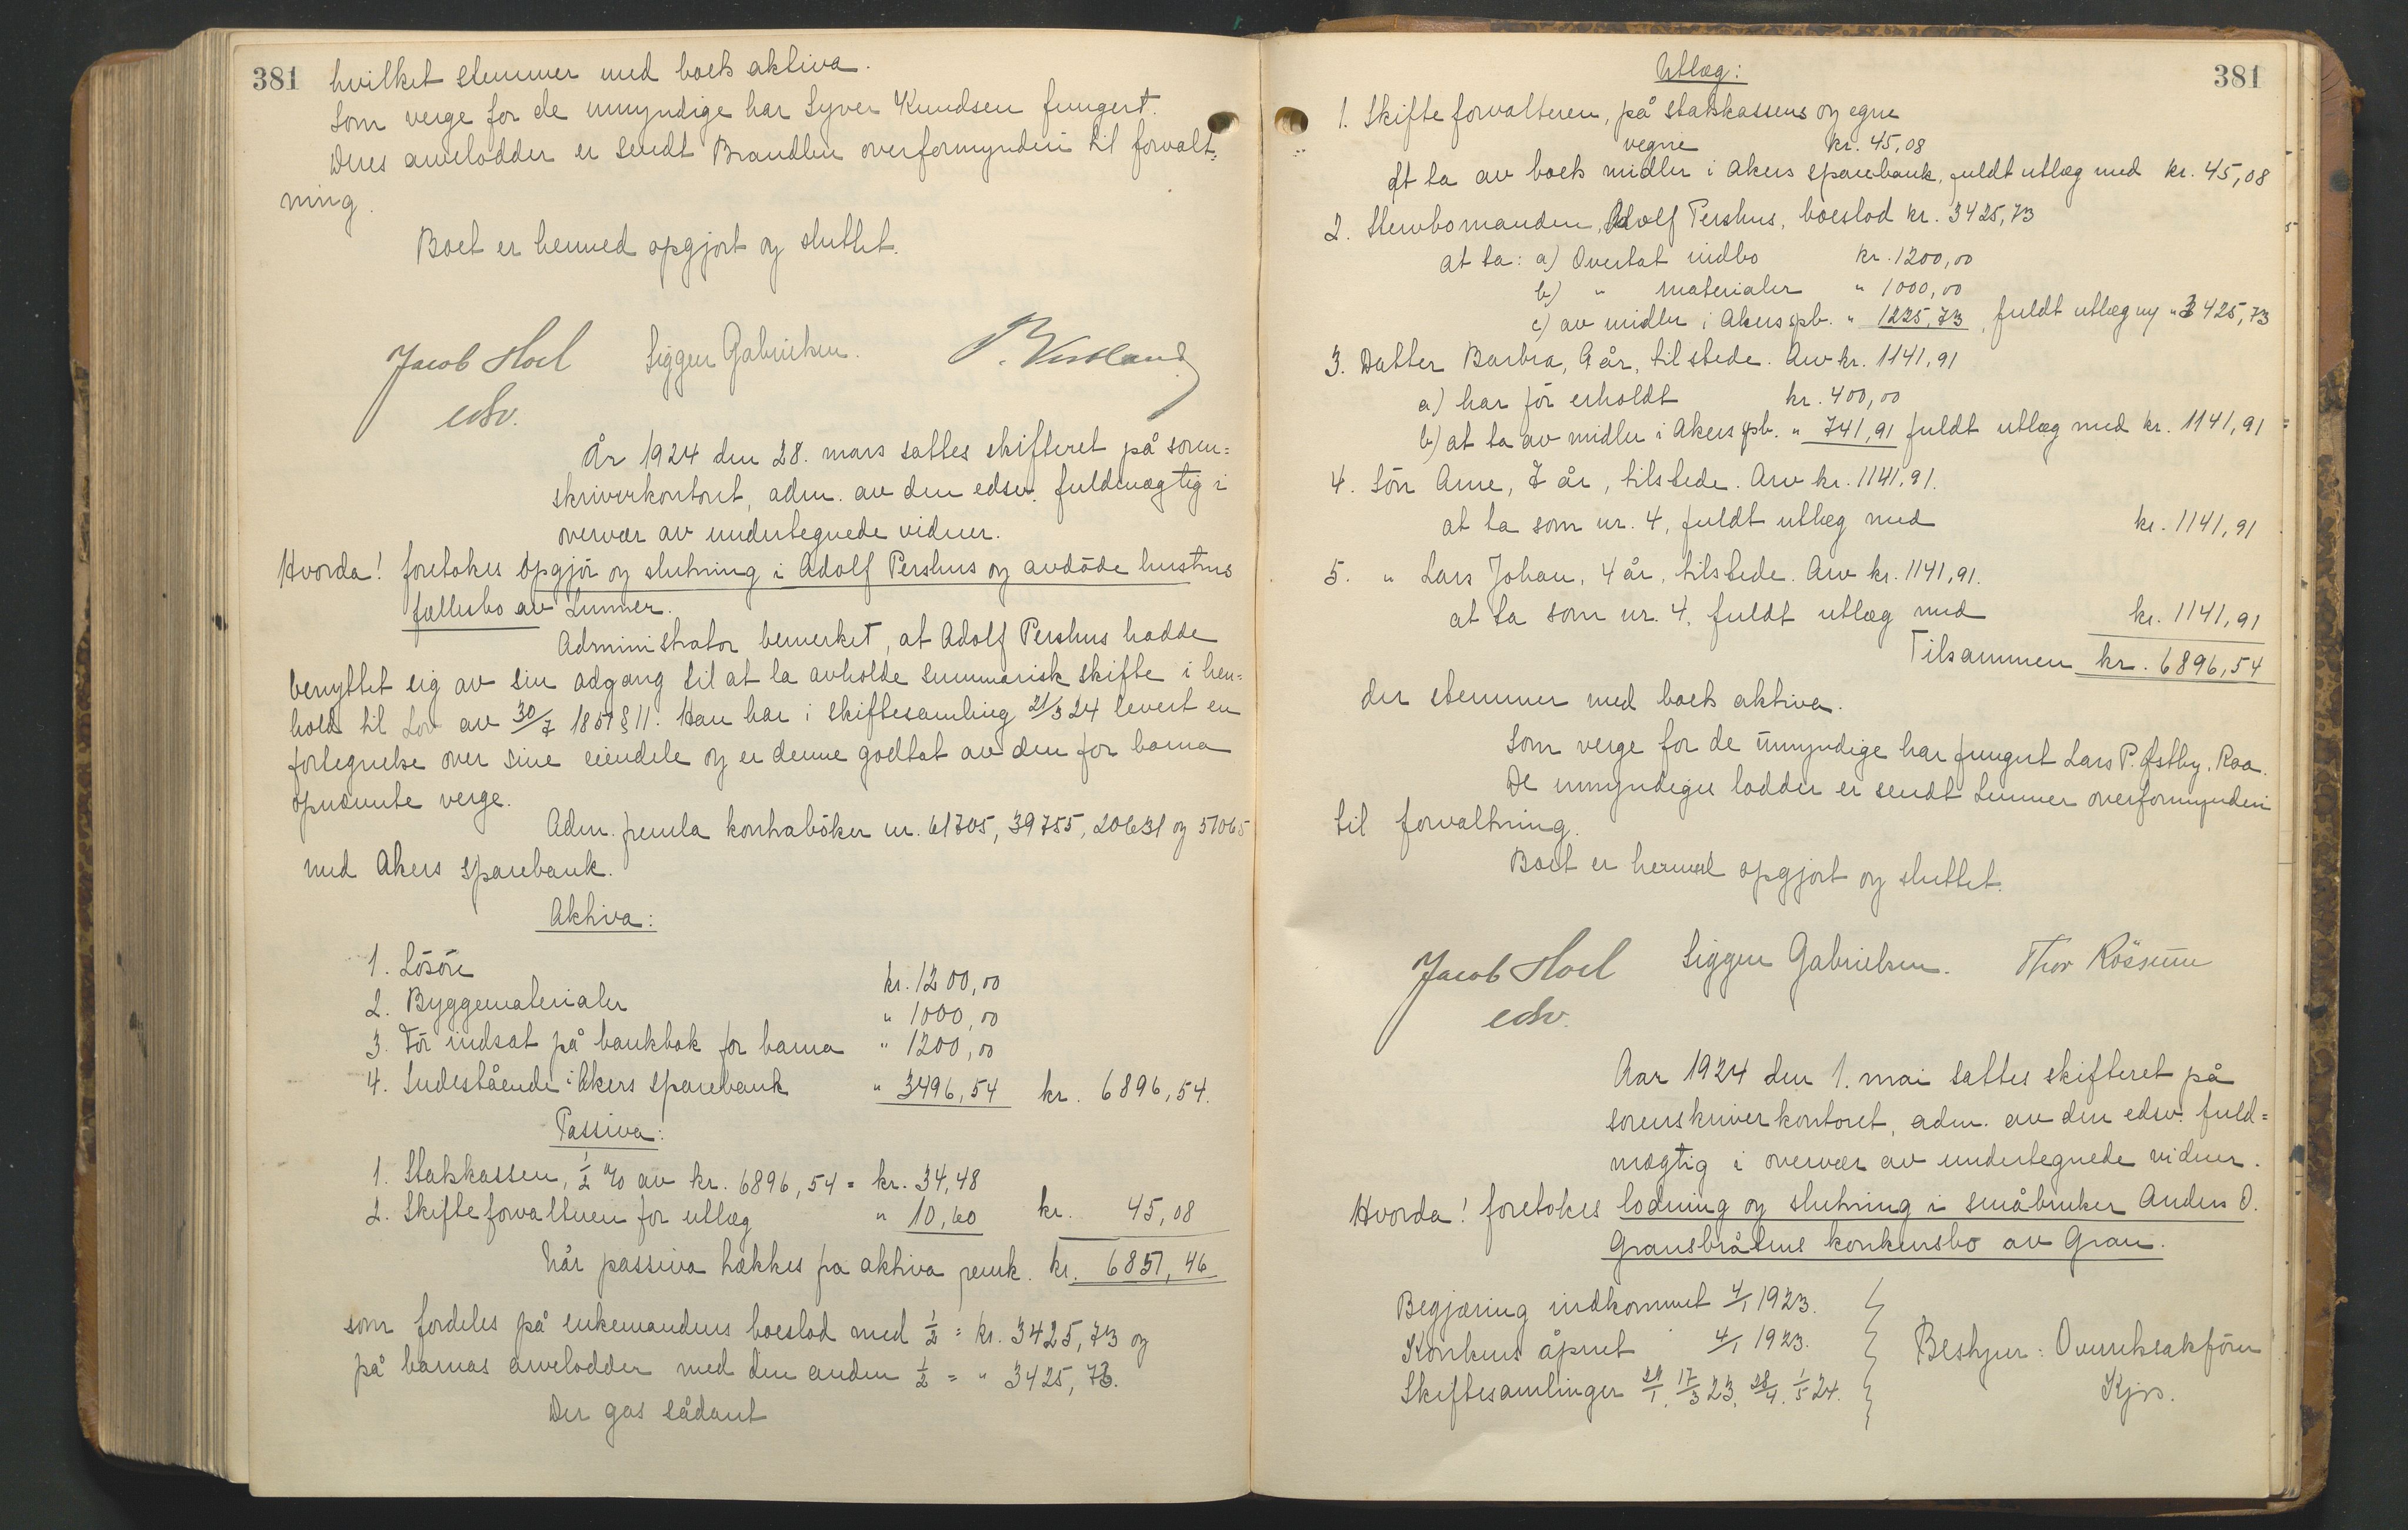 381
hvilket stemmer med boets aktiva.
Som verge for de umyndige har Syver Knudsen fungert.
Deres arvelodder er sendt Brandbu overformynderi til forvalt=
ning.
Boet er hermed opgjort og sluttet.
Jacob Hoel Siggen Gabrielsen.
edsv.
År 1924 den 28. mars sattes skifteret på soren=
skriverkontoret, adm. av den edsv. fuldmægtig i
overvær av undertegnede vidner.
Hvorda! foretokes opgjör og slutning i Adolf Pershus og avdöde hustrus
fællesbo av Lunner.
Administrator bemerket, at Adolf Pershus hadde
benyttet sig av sin adgang til at la avholde summarisk skifte i hen=
hold til Lov av 30/7 1851 § 11. Han har i skiftesamling 21/3 24 levert en
fortegnelse over sine eiendele og er denne godtat av den for barna
opnævnte verge.
Adm. freml. kontraböker nr. 61705, 39755, 20631 og 57065
med Akers sparebank.
Aktiva:
1. Lösöre kr. 1200,00
2. Byggematerialer " 1000,00
3. För indsat på bankbok for barna " 1200,00
4. Indestående i Akers sparebank " 3496,54 kr. 6896,54.
Passiva:
1. Statskassen, 1/2 % av kr. 6896,54 = kr. 34,48
2. Skifteforvalteren for utlæg " 10,60 kr. 45,08
Når passiva trækkes fra aktiva fremk. kr. 6851,46
som fordeles på enkemandens boeslod med 1/2 = kr. 3425,73 og
på barnas arvelodder med den anden 1/2 = " 3425,73.
Der gas sådant
381
Utlæg:
1. Skifteforvalteren, på statskassens og egne
vegne kr. 45,08
At ta av boets midler i Akers sparebank, fuldt utlæg med kr. 45,08
2. Stervbomanden, Adolf Pershus, boeslod kr. 3425,73
at ta: a) Overtat indbo kr. 1200,00
b) " materialer " 1000,00
c) av midler i Akers spb. " 1225,73, fuldt utlæg m/ " 3425,73
3. Datter Barbra, 9 år, tilstede. Arv kr. 1141,91
a) har för erholdt kr. 400,00
b) at ta av midler i Akers spb. " 741,91 fuldt utlæg med kr. 1141,91
4. Sön Arne, 7 år, tilstede. Arv kr. 1141,91.
at ta som nr. 4, fuldt utlæg med kr. 1141,91
5. " Lars Johan, 4 år, tilstede. Arv kr. 1141,91.
at ta som nr. 4, fuldt utlæg med kr. 1141,91
Tilsammen kr. 6896,54
der stemmer med boets aktiva.
Som verge for de umyndige har fungert Lars P. Østby, Roa.
De umyndiges lodder er sendt Lunner overformynderi
til forvaltning.
Boet er hermed opgjort og sluttet.
Jacob Hoel Siggen Gabrielsen. Thor Rössum
edsv.
Aar 1924 den 1. mai sattes skifteret på
sorenskriverkontoret, adm. av den edsv. fuld=
mægtig i overvær av undertegnede vidner.
Hvorda! foretokes lodning og slutning i småbruker Anders O.
Gransbråtens konkursbo av Gran.
Begjæring indkommet 4/1 1923.
Konkurs åpnet 4/1 1923.
Skiftesamlinger 29/1, 17/3 23, 28/4, 1/5 24.
Bestyrer: Overretssakförer
Kjos.